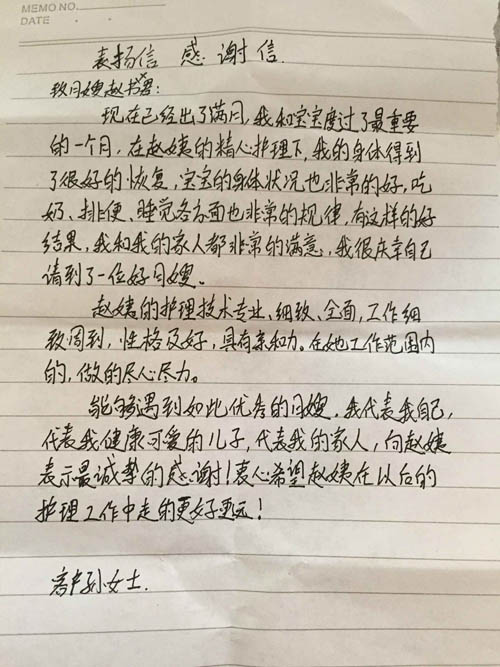 MEMO NO.
DATE
表扬信 感谢信.
致月嫂赵书:
现在已经出了满月,我和宝宝度过了最重要
的一个月,在赵姨的精心护理下,我的身体得到
了很好的恢复,宝宝的身体状况也非常的好,吃
奶、排便、睡觉各方面也非常的规律,有这样的好
结果,我和我的家人都非常的满意,我很庆幸自己
请到了一位好月嫂。
赵姨的护理技术专业、细致、全面,工作细
致周到,性格及好,具有亲和力。在她工作范围内
的,做的尽心尽力。
能够遇到如此优秀的月嫂,我代表我自己,
代表我健康可爱的儿子,代表我的家人,向赵姨
表示最诚挚的感谢!衷心希望赵姨在以后的
护理工作中走的更好更远!
客户孙女士.